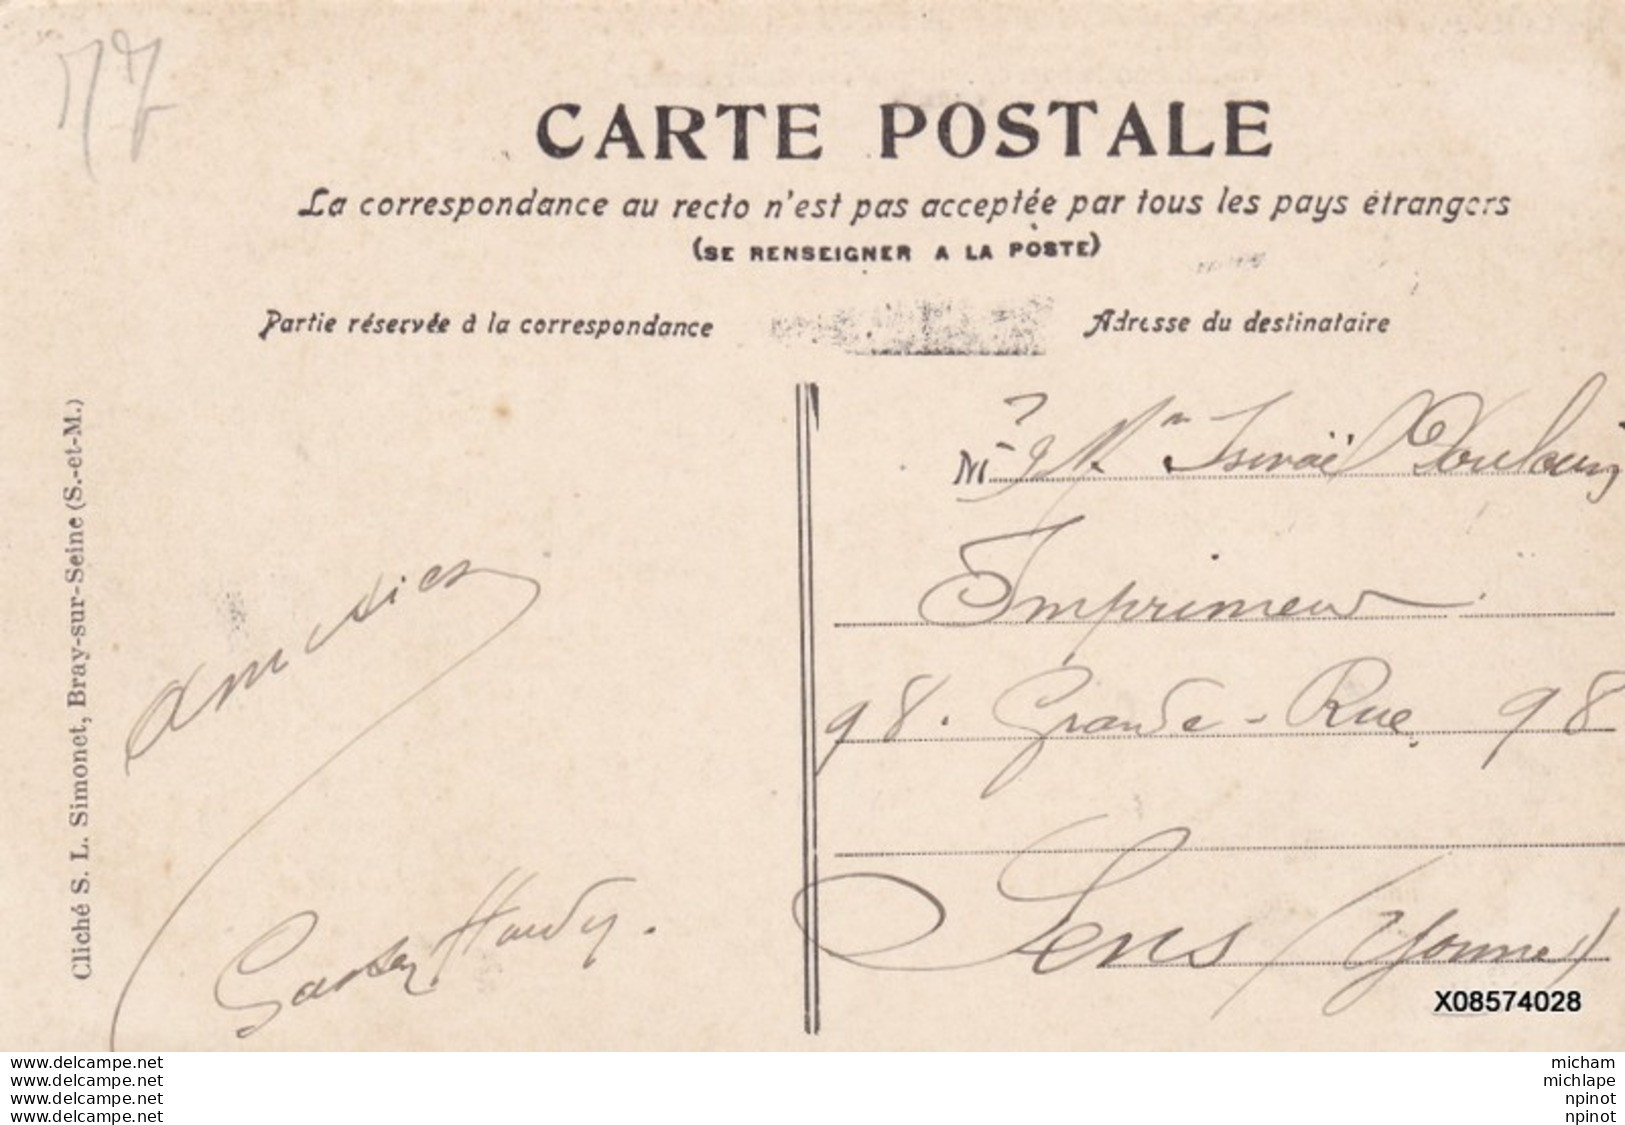 77
CARTE POSTALE
La correspondance au recto n'est pas acceptée par tous les pays étrangers
(SE RENSEIGNER A LA POSTE)
Partie réservée à la correspondance
Adresse du destinataire
Cliché S. L. Simonet, Bray-sur-Seine (S.-et-M.)
M
Israël
Imprimeur
98. Grande-Rue 98
Sens (Yonne)
amitiés
Gaston Hardy.
X08574028
www.delcampe.net
www.delcampe.net
www.delcampe.net
www.delcampe.net
micham
michlape
npinot
npinot